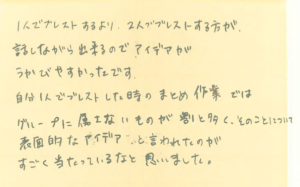 1人でブレストするより、2人でブレストする方が、
話しながら出来るのでアイデアが
うかびやすかったです。
自分1人でブレストした時のまとめ作業では
グループに属さないものが割と多く、そのことについて
表面的なアイデアと言われたのが
すごく当たっているなと思いました。